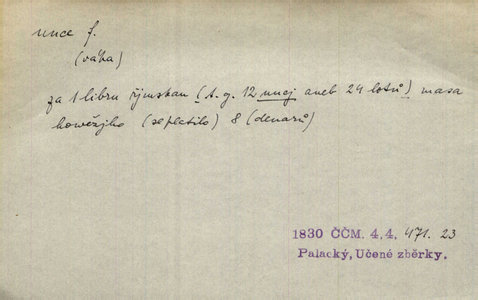 unce f.
(váha)
za 1 libru řjmskau (t. g. 12 uncj aneb 24 lotů) masa
howězjho (se platilo) 8 (denarů)
1830 ČČM. 4,4, 471. 23
Palacký, Učené zběrky.